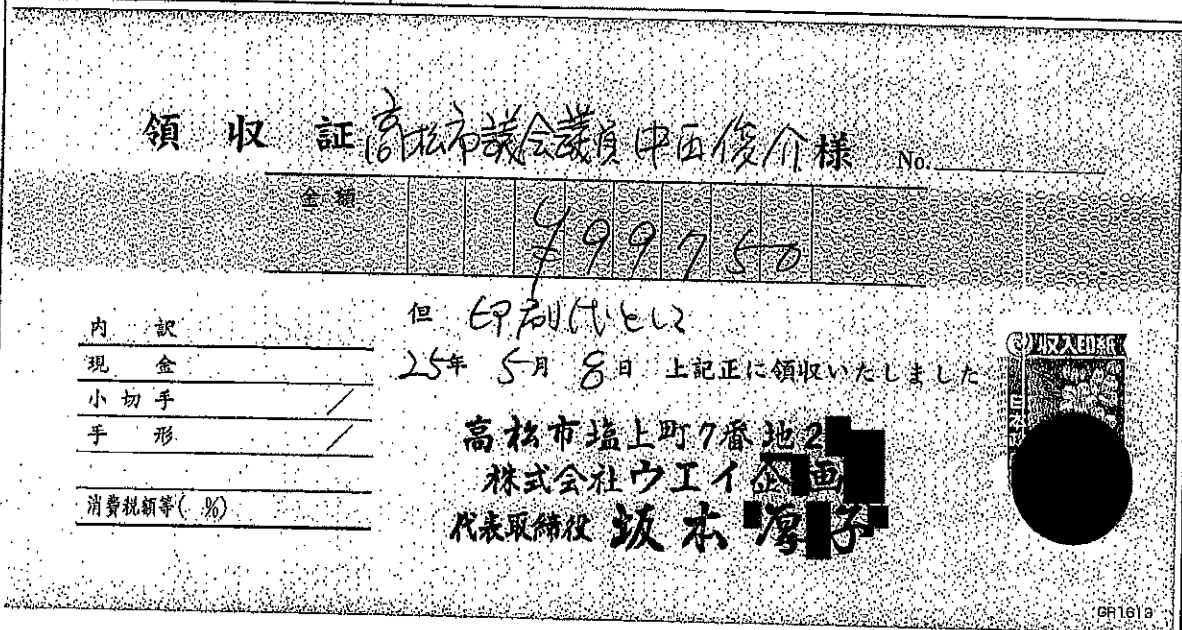 領収証 高松市議会議員中西俊介様 No.
金額
¥99750
但 印刷代として
25年 5月 8日 上記正に領収いたしました
内訳
現金
小切手 /
手形 /
消費税額等( %)
収入印紙
高松市塩上町7番地2
株式会社ウエイ企画
代表取締役 坂本厚子
GR1613